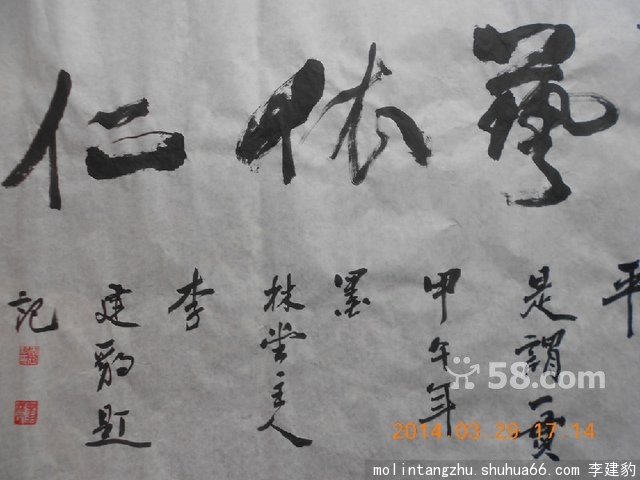 藝依仁
平
是謂一貫
甲午年
墨
林堂主人
李
建豹題
記
58.com
2014 03 29 17 14
molintangzhu.shuhua66.com 李建豹